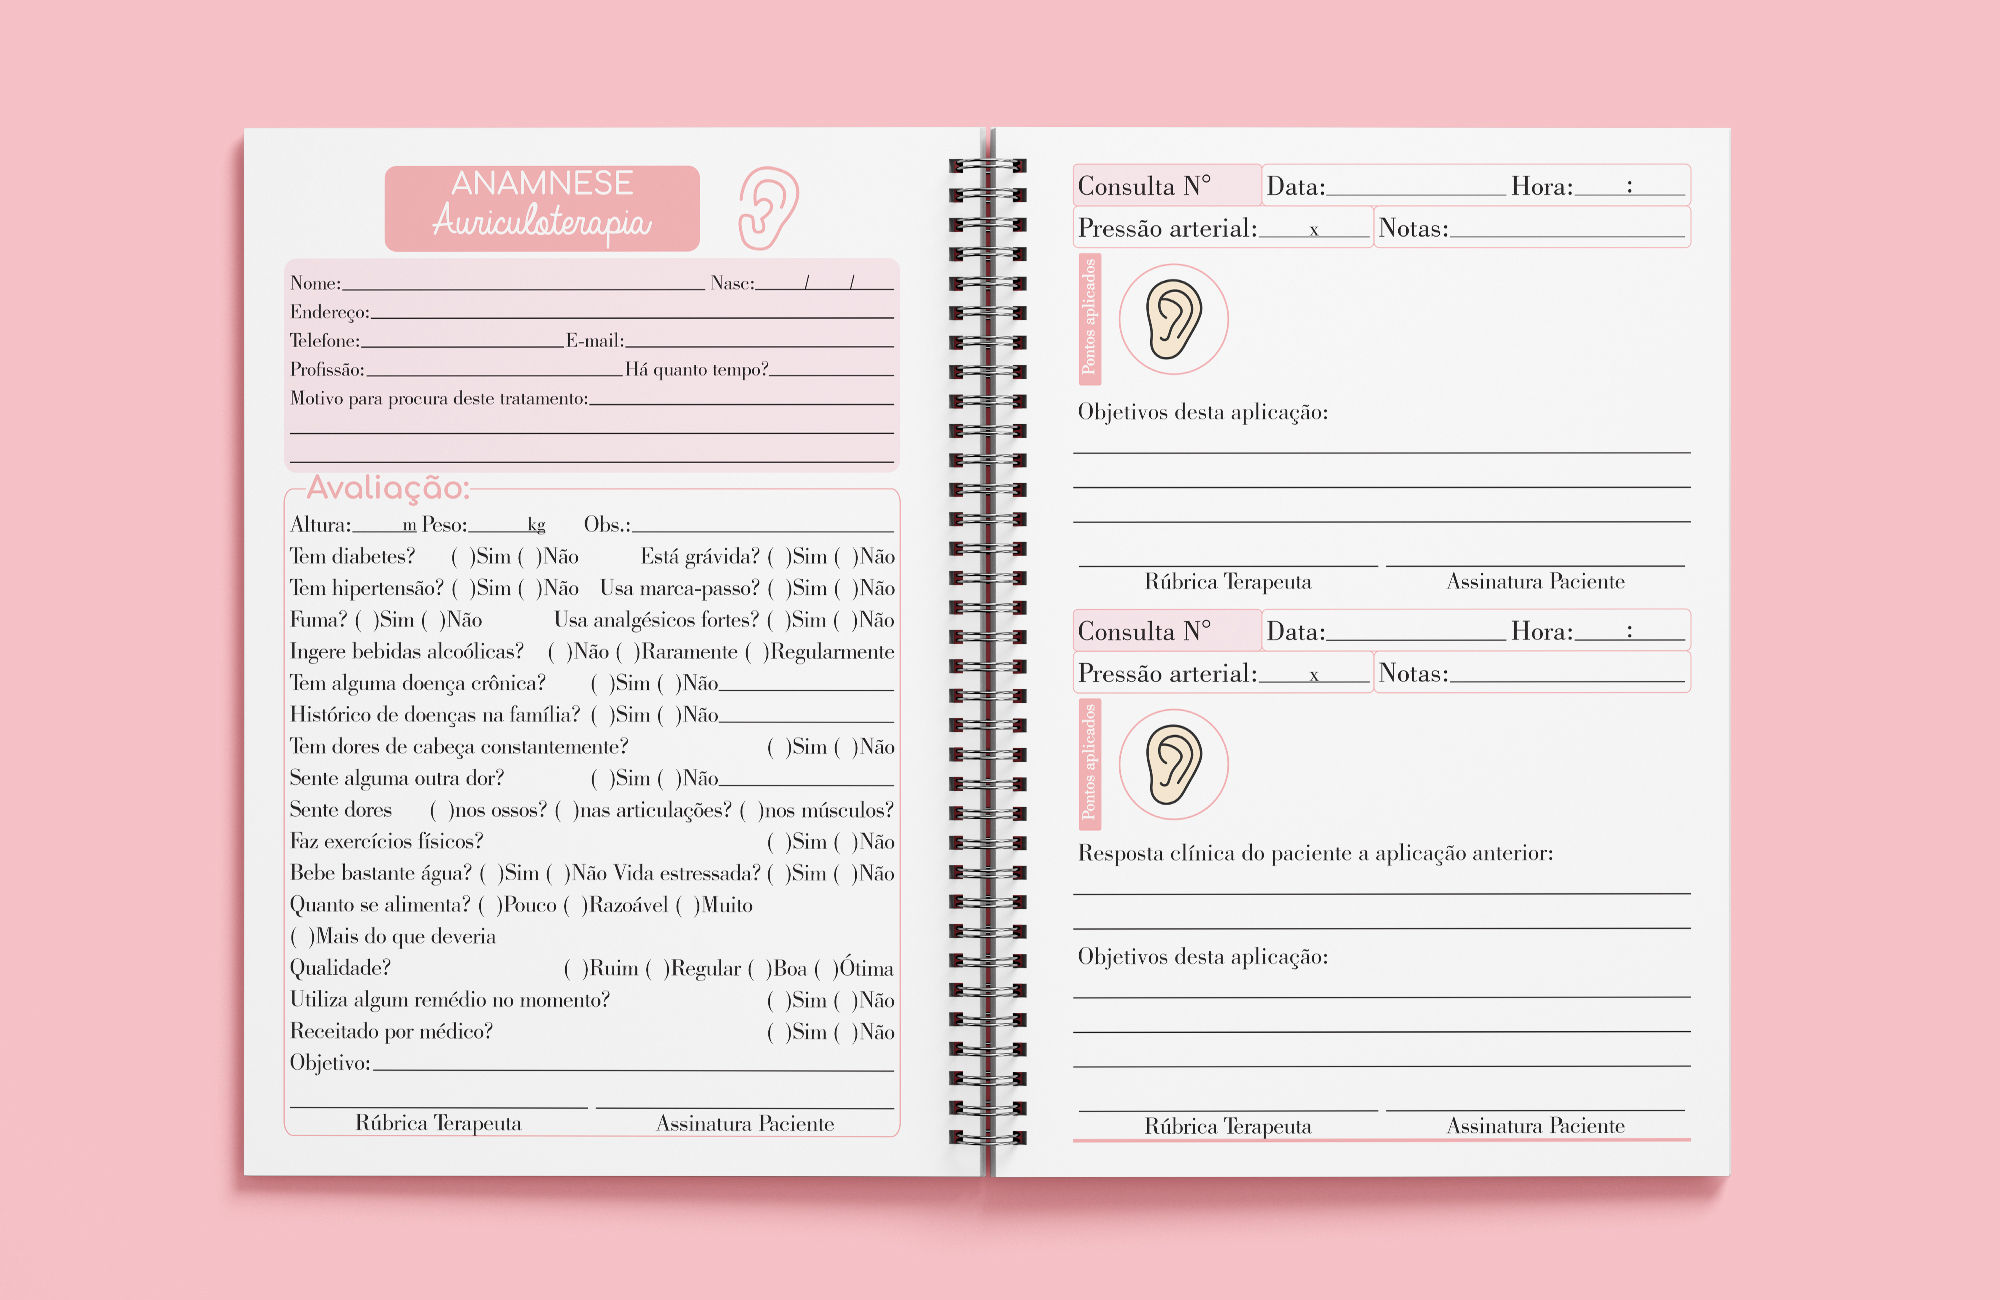 ANAMNESE
Auriculoterapia
Nome:____ Nasc:____/____/____
Endereço:____
Telefone:____E-mail:____
Profissão:____Há quanto tempo?____
Motivo para procura deste tratamento:____
Avaliação:
Altura:____m Peso:____kg Obs.:____
Tem diabetes? ( )Sim ( )Não Está grávida? ( )Sim ( )Não
Tem hipertensão? ( )Sim ( )Não Usa marca-passo? ( )Sim ( )Não
Fuma? ( )Sim ( )Não Usa analgésicos fortes? ( )Sim ( )Não
Ingere bebidas alcoólicas? ( )Não ( )Raramente ( )Regularmente
Tem alguma doença crônica? ( )Sim ( )Não____
Histórico de doenças na família? ( )Sim ( )Não____
Tem dores de cabeça constantemente? ( )Sim ( )Não
Sente alguma outra dor? ( )Sim ( )Não____
Sente dores ( )nos ossos? ( )nas articulações? ( )nos músculos?
Faz exercícios físicos? ( )Sim ( )Não
Bebe bastante água? ( )Sim ( )Não Vida estressada? ( )Sim ( )Não
Quanto se alimenta? ( )Pouco ( )Razoável ( )Muito
( )Mais do que deveria
Qualidade? ( )Ruim ( )Regular ( )Boa ( )Ótima
Utiliza algum remédio no momento? ( )Sim ( )Não
Receitado por médico? ( )Sim ( )Não
Objetivo:____
Rúbrica Terapeuta Assinatura Paciente
Consulta N° Data:____ Hora:____:____
Pressão arterial:____x____ Notas:____
Pontos aplicados
Objetivos desta aplicação:
Rúbrica Terapeuta Assinatura Paciente
Consulta N° Data:____ Hora:____:____
Pressão arterial:____x____ Notas:____
Pontos aplicados
Resposta clínica do paciente a aplicação anterior:
Objetivos desta aplicação:
Rúbrica Terapeuta Assinatura Paciente